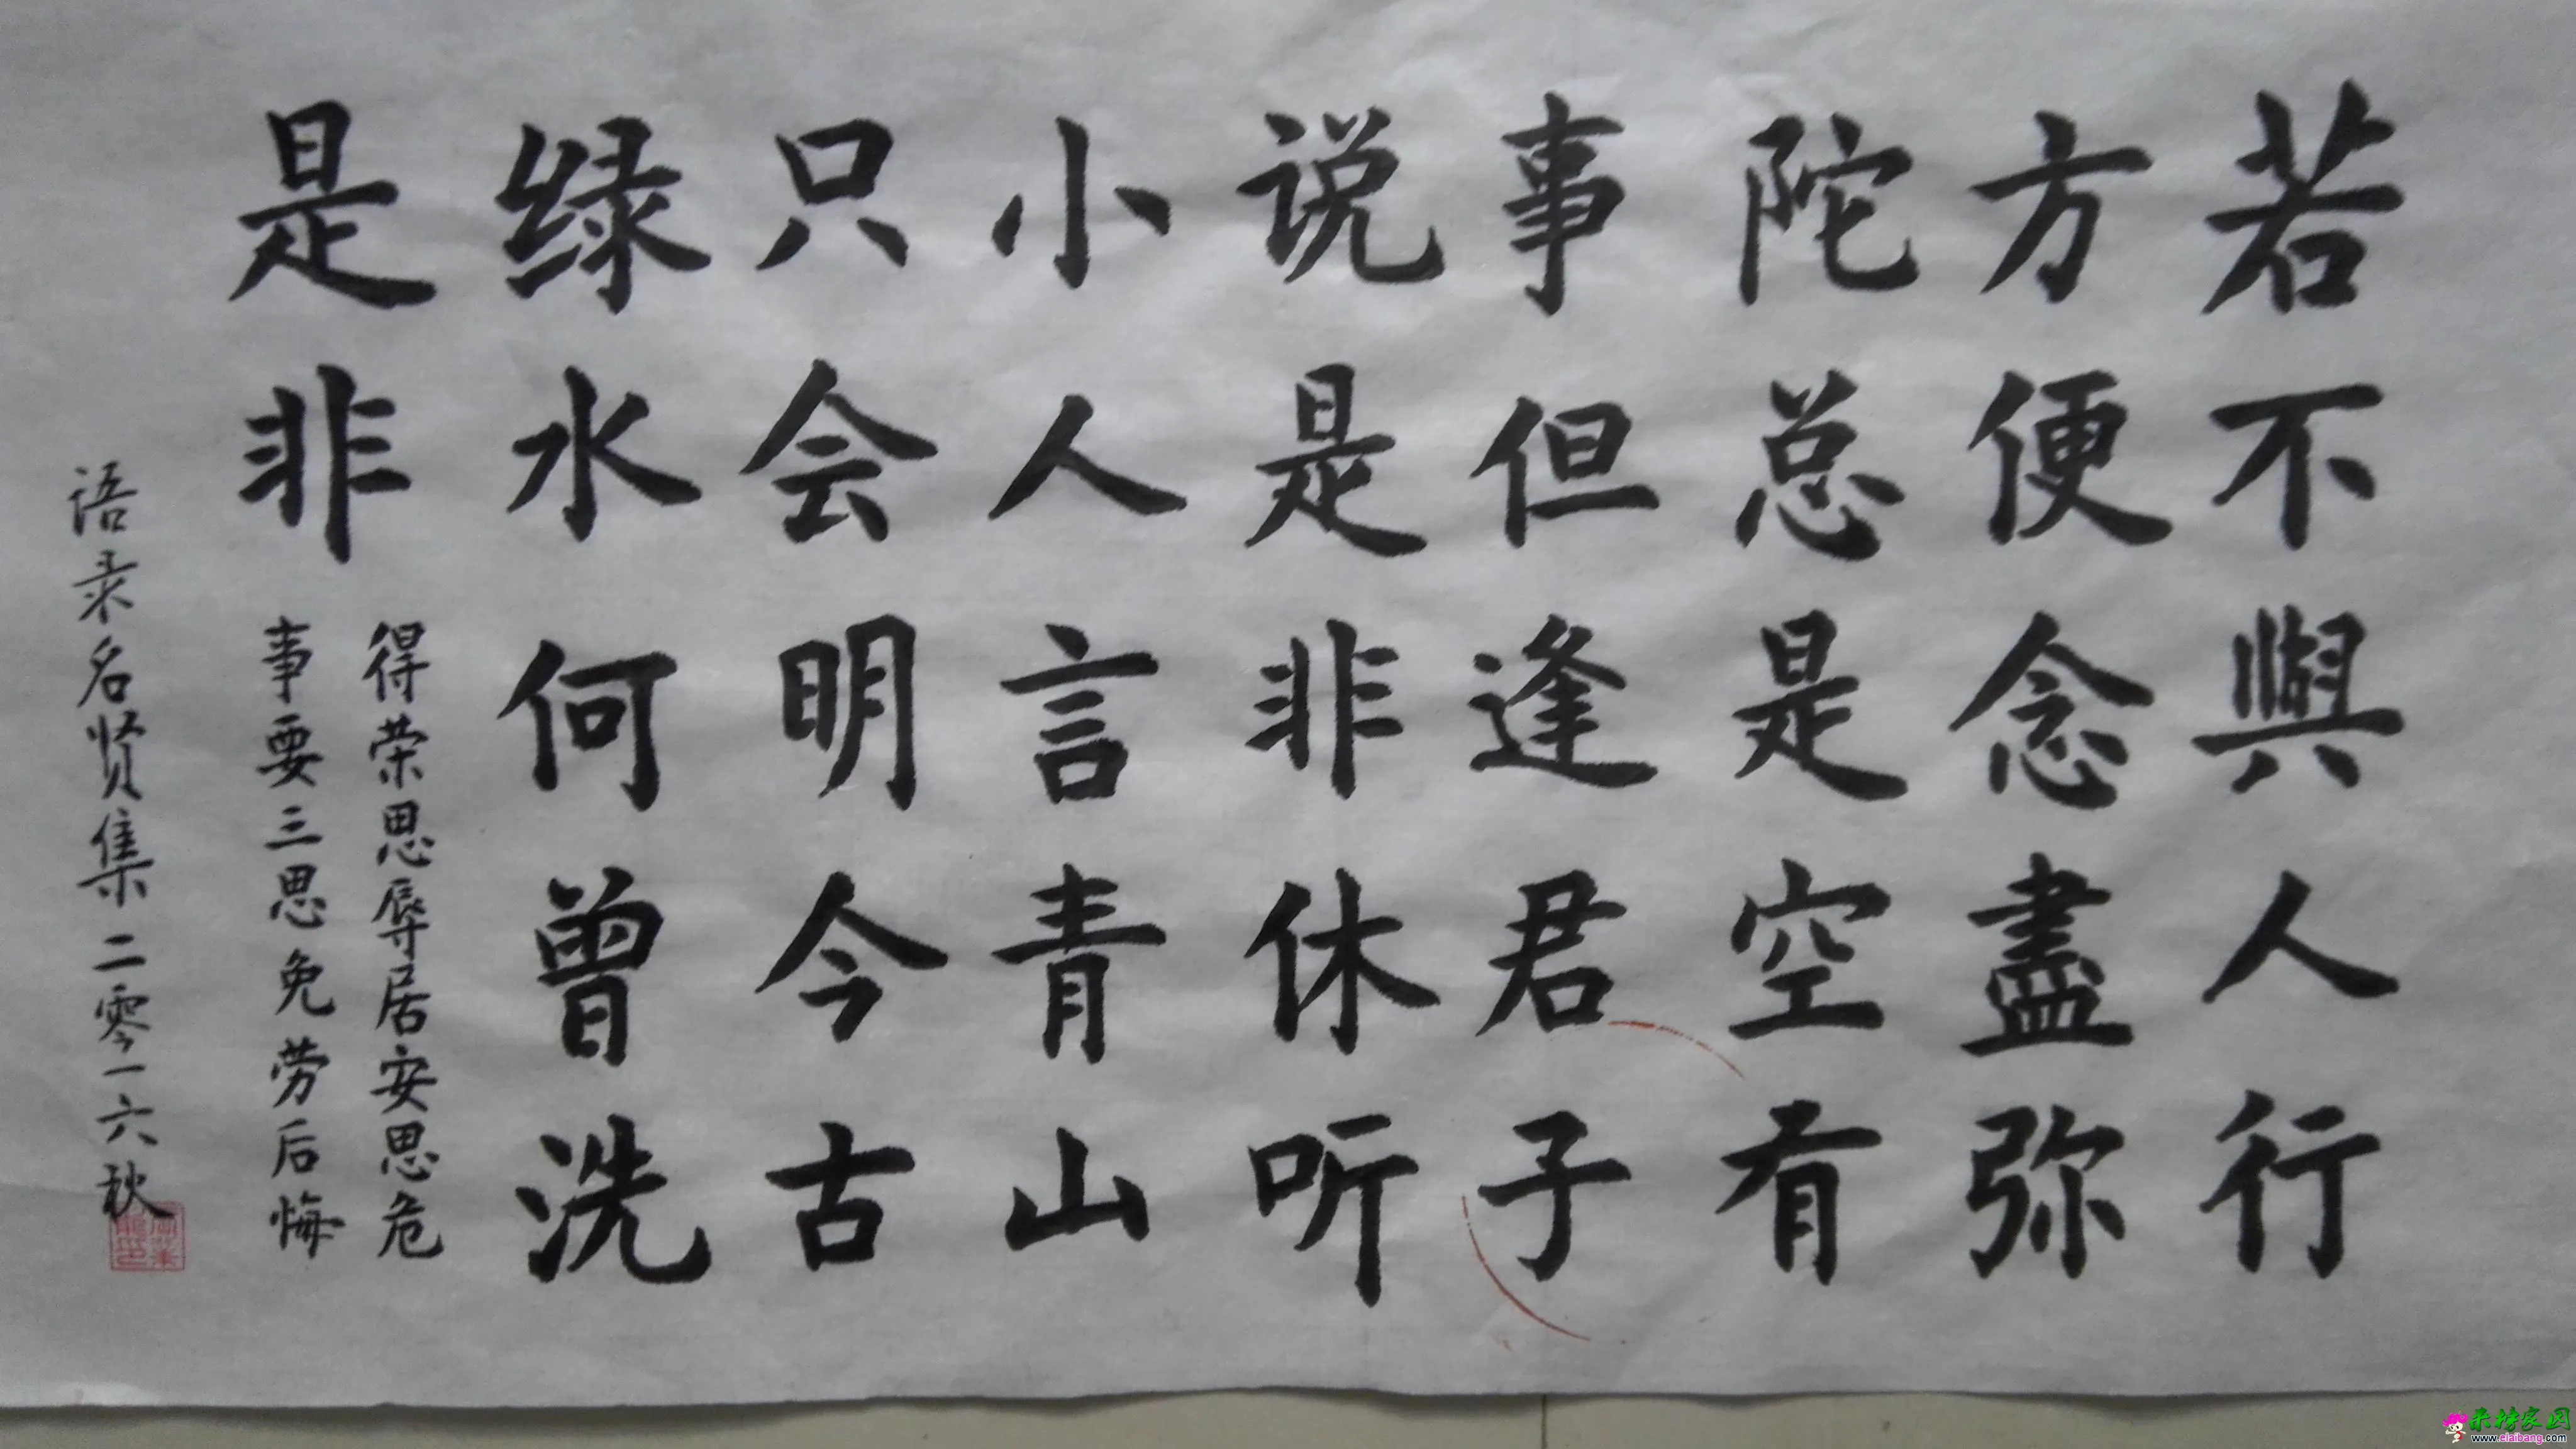 若不與人行
方便念盡弥
陀总是空有
事但逢君子
说是非休听
小人言青山
只会明今古
绿水何曾洗
是非
得荣思辱居安思危
事要三思免劳后悔
语录名贤集二零一六秋
www.elaibang.com